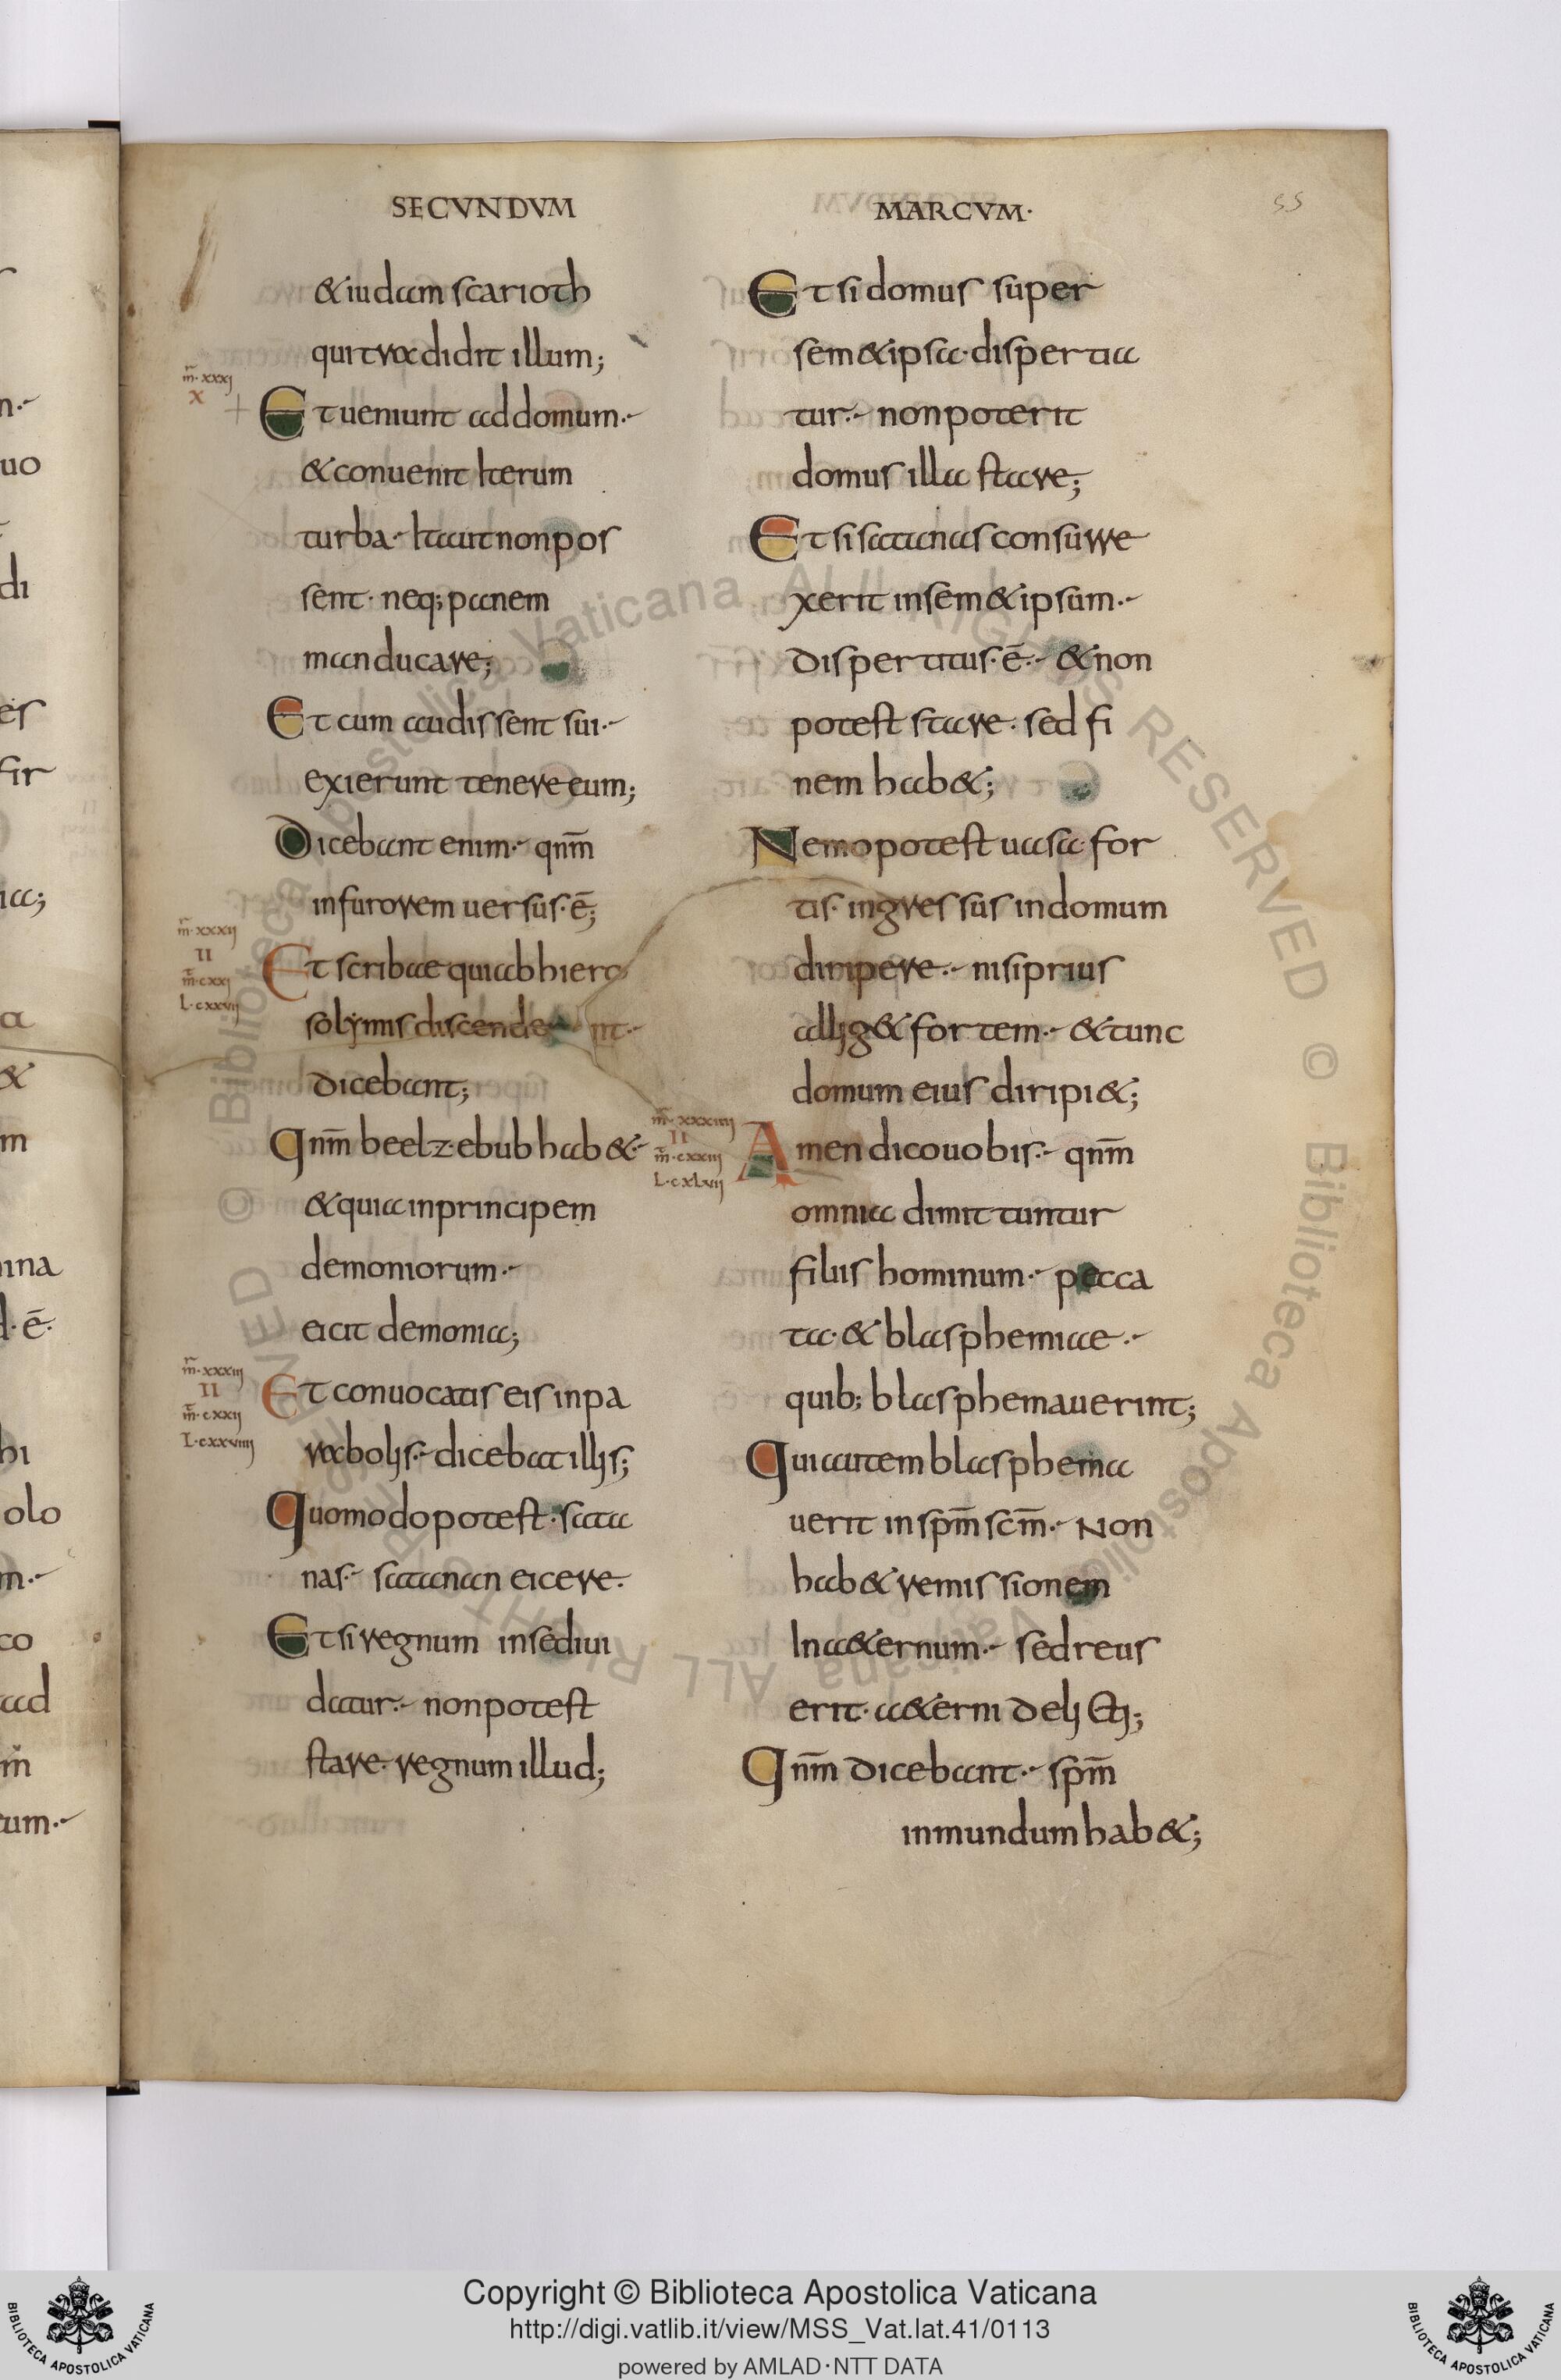 SECVNDVM
MARCVM·
55
&iudam scarioth
qui tradidit illum;
m̄·xxxj
x
Et ueniunt ad domum·-
&conuenit Iterum
turba·- Itaut non pos
sent· neq; panem
manducare;
Et cum audissent sui·-
exierunt tenere eum;
Dicebant enim·- qnm̄
in furorem uersus·ē;
m̄·xxxij
II
m̄·cxxj
L·cxxvij
Et scribae qui ab hiero
solymis discende nt·-
dicebant;
Qnm̄ beelzebub hab&·-
&quia in principem
demoniorum·-
eicit demonia;
m̄·xxxiij
II
m̄·cxxij
L·cxxviiij
Et conuocatis eis in pa
rabolis·- dicebat illis;
Quomodo potest· sata
nas·- satanan eicere·
Et si regnum in sediui
datur·- non potest
stare· regnum illud;
Et si domus super
sem&ipsa· disperta
tur·- non poterit
domus illa stare;
Et si satanas consurre
xerit in sem&ipsum·-
dispertitus·ē·- &non
potest stare· sed fi
nem hab&;
Nemo potest uasa· for
tis· ingressus in domum
diripere·- nisi prius
allig& fortem·- &tunc
domum eius diripi&;
m̄·xxxiiij
II
m̄·cxxiij
L·cxlvij
Amen dico uobis·- qnm̄
omnia dimittuntur
filiis hominum·- pecca
ta· & blasphemiae·-
quib; blasphemauerint;
Qui autem blasphema
uerit in spm̄ scm̄·- Non
hab& remissionem
In a&ernum·- sed reus
erit· a&erni delicti;
Qnm̄ dicebant·- spm̄
inmundum hab&;
Copyright © Biblioteca Apostolica Vaticana
http://digi.vatlib.it/view/MSS_Vat.lat.41/0113
powered by AMLAD·NTT DATA
BIBLIOTECA APOSTOLICA VATICANA
BIBLIOTECA APOSTOLICA VATICANA